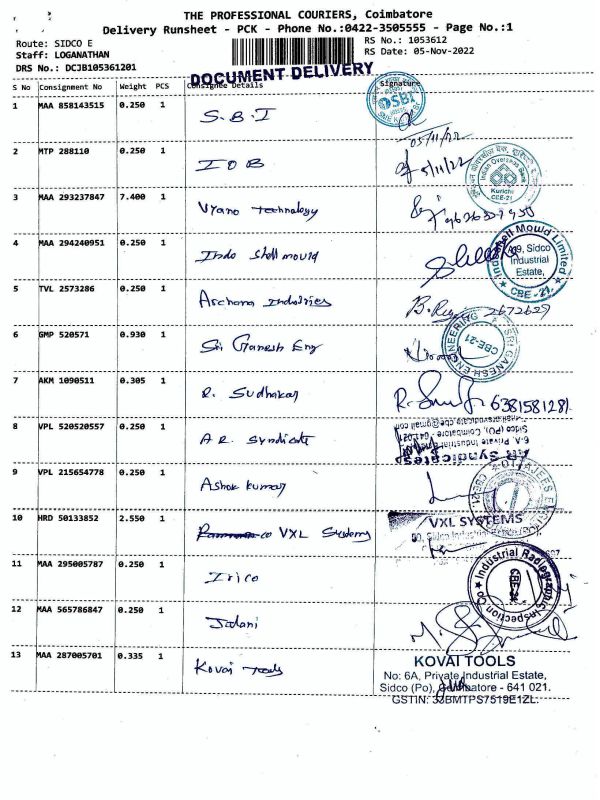 THE PROFESSIONAL COURIERS, Coimbatore
Delivery Runsheet - PCK - Phone No.:0422-3505555 - Page No.:1
Route: SIDCO E
RS No.: 1053612
Staff: LOGANATHAN
RS Date: 05-Nov-2022
DRS No.: DCJB105361201
DOCUMENT DELIVERY
S No Consignment No Weight PCS Consignee Details Signature
1 MAA 858143515 0.250 1 S.B.I
SBI
05/11/22
2 MTP 288110 0.250 1 IOB 5/11/22
Indian Overseas Bank
Kurichi
CBE-21
3 MAA 293237847 7.400 1 Vyano Technology
4 MAA 294240951 0.250 1 Indo Shell mould
Indo Shell Mould Limited
A9, Sidco
Industrial
Estate,
CBE - 21.
5 TVL 2573286 0.250 1 Archana Industries 2672629
6 GMP 520571 0.930 1 Sri Ganesh Eng
SRI GANESH ENGINEERING
CBE-21
7 AKM 1090511 0.305 1 R. Sudhakar 6381581281
8 VPL 520520557 0.250 1 A.R. Syndicate
AR Syndicates
6-A, Private Industrial Estate,
Sidco (PO), Coimbatore - 641 021.
9 VPL 215654778 0.250 1 Ashok kumar
10 HRD 50133852 2.550 1 VXL Systems
VXL SYSTEMS
11 MAA 295005787 0.250 1 Irico
Industrial Radiographic Inspection Co
CBE-21
12 MAA 565786847 0.250 1 Jalani
13 MAA 287005701 0.335 1 Kovai Tools
KOVAI TOOLS
No: 6A, Private Industrial Estate,
Sidco (Po), Coimbatore - 641 021.
GSTIN: 33BMTPS7519E1ZL.